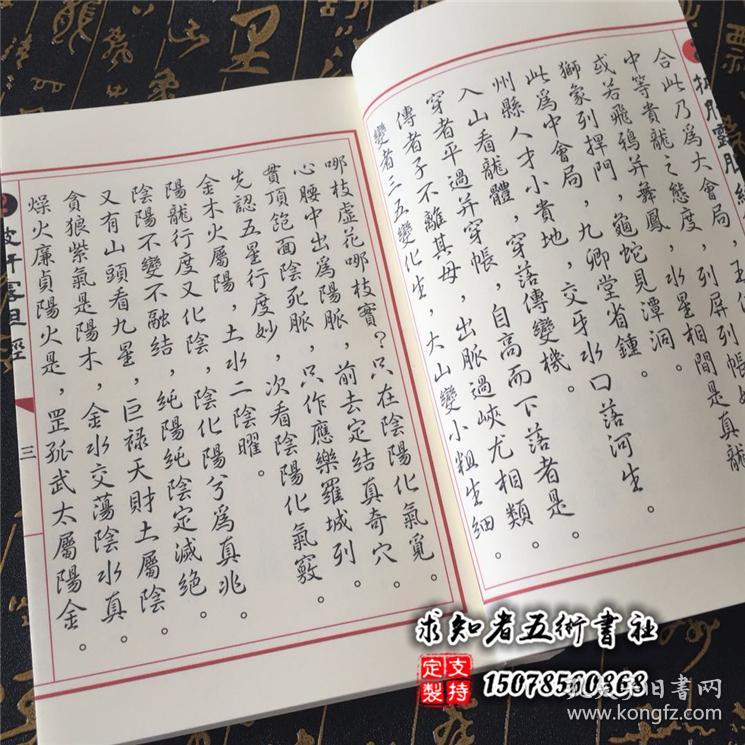 合此乃爲大會局，
中等貴龍之態度，列屏列帳
或若飛鴉并舞鳳，水星相間是真龍
獅象列捍門，龜蛇見潭洞。
此爲中會局，九卿堂省鍾。
州縣人才小貴地，交牙水口落河生。
入山看龍體，穿落傳變機。
穿者平過并穿帳，自高而下落者是。
傳者子不離其母，出脈過峽尤相類。
變者二五變化生，大山變小粗生細。
哪枝虛花哪枝實？只在陰陽化氣覓。
心腰中出爲陽脈，前去定結真奇穴。
貫頂飽面陰死脈，只作應樂羅城列。
先認五星行度妙，次看陰陽化氣竅。
金木火屬陽，土水二陰曜。
陽龍行度又化陰，陰化陽兮爲真兆。
陰陽不變不融結，純陽純陰定滅絕。
又有山頭看九星，巨祿天財土屬陰。
貪狼紫氣是陽木，金水交蕩陰水真。
燥火廉貞陽火是，罡孤武太屬陽金。
三
求知者五術書社
支持定製
15078560868
孔夫子旧書网
www.kongfz.com